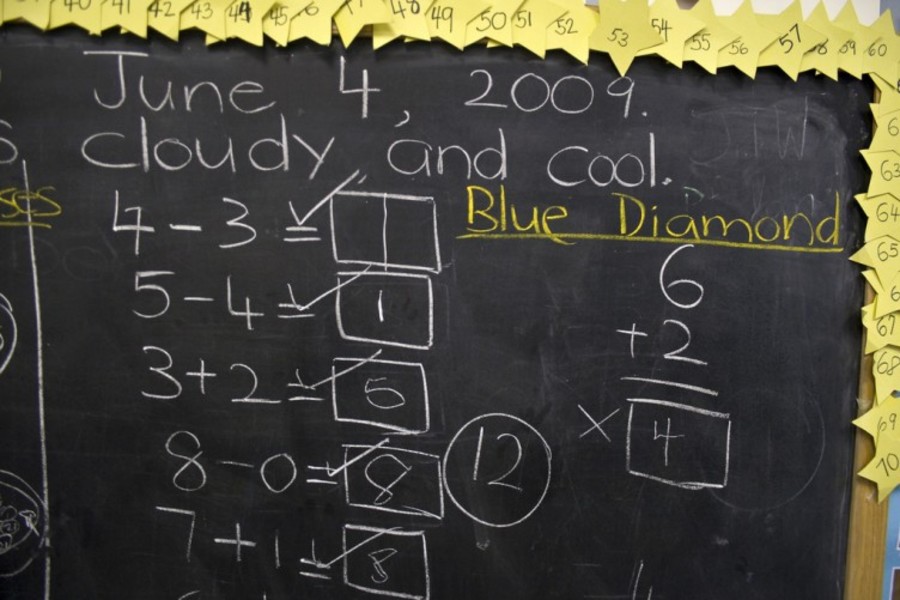 40 41 42 43 44 45 48 49 50 51 52 53 54 55 56 57 59 60
June 4, 2009.
cloudy, and cool.
JTW
4 - 3 = 1
Blue Diamond
5 - 4 = 1
3 + 2 = 5
8 - 0 = 8
12
7 + 1 = 8
6
+2
× 4
63
64
65
67
68
69
70